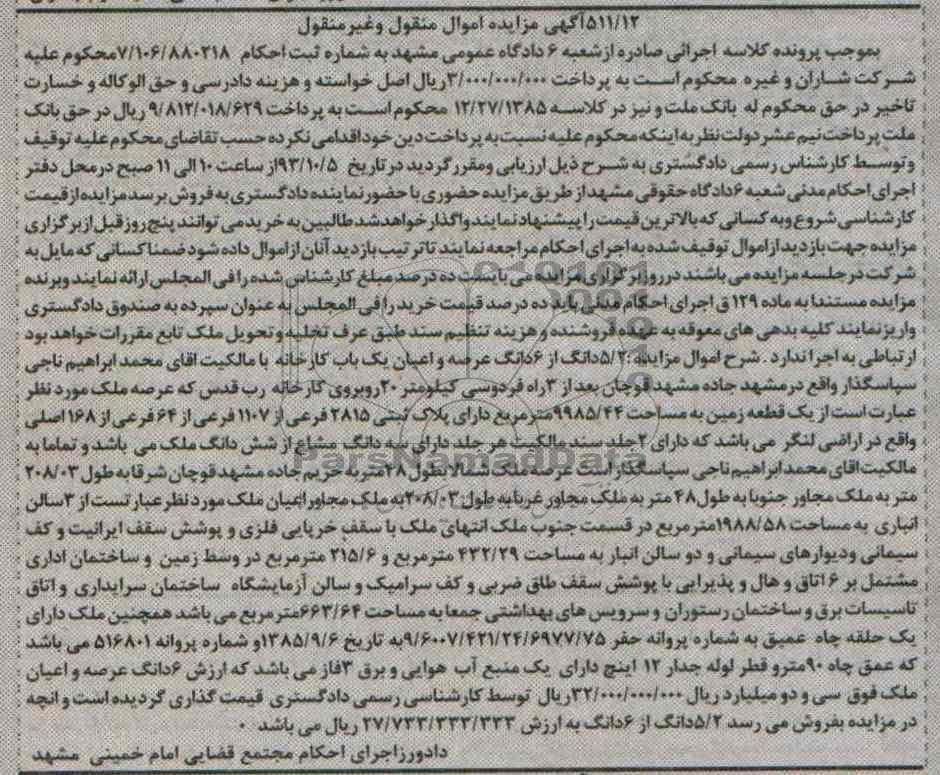 ۵۱۱/۱۲آگهی مزایده اموال منقول وغیرمنقول
بموجب پرونده کلاسه اجرائی صادره ازشعبه ۶ دادگاه عمومی مشهد به شماره ثبت احکام ۷/۱۰۶/۸۸۰۲۱۸محکوم علیه
شرکت شاران و غیره محکوم است به پرداخت ۳/۰۰۰/۰۰۰/۰۰۰ریال اصل خواسته و هزینه دادرسی و حق الوکاله و خسارت
تاخیر در حق محکوم له بانک ملت و نیز در کلاسه ۱۲/۲۷/۱۳۸۵ محکوم است به پرداخت ۹/۸۱۲/۰۱۸/۶۲۹ ریال در حق بانک
ملت پرداخت نیم عشر دولت نظر به اینکه محکوم علیه نسبت به پرداخت دین خود اقدامی نکرده حسب تقاضای محکوم علیه توقیف
و توسط کارشناس رسمی دادگستری به شرح ذیل ارزیابی ومقرر گردید در تاریخ ۹۳/۱۰/۵از ساعت ۱۰ الی ۱۱ صبح درمحل دفتر
اجرای احکام مدنی شعبه ۶دادگاه حقوقی مشهد از طریق مزایده حضوری با حضور نماینده دادگستری به فروش برسد مزایده از قیمت
کارشناسی شروع وبه کسانی که بالاترین قیمت را پیشنهاد نمایند واگذار خواهد شد طالبین به خرید می توانند پنج روز قبل از برگزاری
مزایده جهت بازدید از اموال توقیف شده به اجرای احکام مراجعه نمایند تا ترتیب بازدید آنان از اموال داده شود ضمنا کسانی که مایل به
شرکت در جلسه مزایده می باشند در روز برگزاری مزایده می بایست ده درصد مبلغ کارشناس شده را فی المجلس ارائه نمایند و برنده
مزایده مستندا به ماده ۱۲۹ ق اجرای احکام مدنی باید ده درصد قیمت خرید را فی المجلس به عنوان سپرده به صندوق دادگستری
واریز نمایند کلیه بدهی های معوقه به عهده فروشنده و هزینه تنظیم سند طبق عرف تخلیه و تحویل ملک تابع مقررات خواهد بود
ارتباطی به اجرا ندارد . شرح اموال مزایده :۵/۲دانگ از ۶دانگ عرصه و اعیان یک باب کارخانه با مالکیت اقای محمد ابراهیم ناجی
سپاسگذار واقع در مشهد جاده مشهد قوچان بعد از ۳ راه فردوسی کیلومتر ۲۰ روبروی کارخانه رب قدس که عرصه ملک مورد نظر
عبارت است از یک قطعه زمین به مساحت ۹۹۸۵/۴۴مترمربع دارای پلاک ثبتی ۲۸۱۵ فرعی از ۱۱۰۷ فرعی از ۶۴ فرعی از ۱۶۸ اصلی
واقع در اراضی لنگر می باشد که دارای ۲جلد سند مالکیت هر جلد دارای سه دانگ مشاع از شش دانگ ملک می باشد و تماما به
مالکیت اقای محمد ابراهیم ناجی سپاسگذار است عرصه ملک شمالا بطول ۴۸متر به حریم جاده مشهد قوچان شرقا به طول ۲۰۸/۰۳
متر به ملک مجاور جنوبا به طول۴۸ متر به ملک مجاور غربا به طول ۲۰۸/۰۳به ملک مجاور اعیان ملک مورد نظر عبارتست از ۳سالن
انباری به مساحت ۱۹۸۸/۵۸مترمربع در قسمت جنوب ملک انتهای ملک با سقف خرپایی فلزی و پوشش سقف ایرانیت و کف
سیمانی ودیوارهای سیمانی و دو سالن انبار به مساحت ۴۳۲/۲۹ مترمربع و ۲۱۵/۶ مترمربع در وسط زمین و ساختمان اداری
مشتمل بر ۶ اتاق و هال و پذیرایی با پوشش سقف طاق ضربی و کف سرامیک و سالن آزمایشگاه ساختمان سرایداری و اتاق
تاسیسات برق و ساختمان رستوران و سرویس های بهداشتی جمعا به مساحت ۶۶۳/۶۴مترمربع می باشد همچنین ملک دارای
یک حلقه چاه عمیق به شماره پروانه حفر ۹/۶۰۰۷/۴۲۱/۲۴/۶۹۷۷/۷۵به تاریخ ۱۳۸۵/۹/۶و شماره پروانه ۵۱۶۸۰۱ می باشد
که عمق چاه ۹۰مترو قطر لوله جدار ۱۲ اینچ دارای یک منبع آب هوایی و برق ۳فاز می باشد که ارزش ۶دانگ عرصه و اعیان
ملک فوق سی و دو میلیارد ریال ۳۲/۰۰۰/۰۰۰/۰۰۰ریال توسط کارشناسی رسمی دادگستری قیمت گذاری گردیده است و انچه
در مزایده بفروش می رسد ۵/۲دانگ از ۶دانگ به ارزش ۲۷/۷۳۳/۳۳۳/۳۳۳ ریال می باشد .
دادورزاجرای احکام مجتمع قضایی امام خمینی مشهد
ParsNamadData